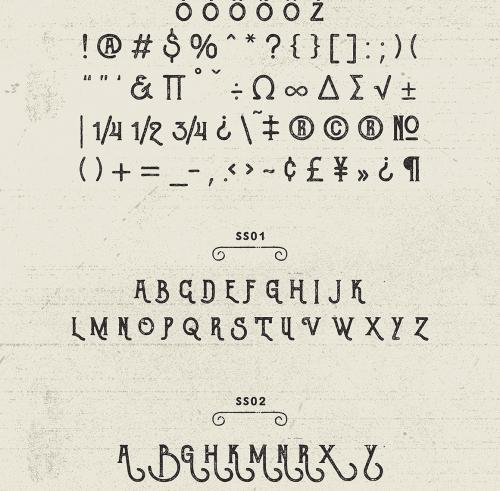 Ò Ó Ô Õ Ö Ž
! @ # $ % ^ * ? { } [ ] : ; ) (
“ ” ‘ & ∏ ° ˇ ÷ Ω ∞ ∆ Σ √ ±
| 1/4 1/2 3/4 ¿ \ ˜ ‡ ® © ® №
( ) + = _ - , . ‹ › ~ ¢ £ ¥ » ¿ ¶
SS01
A B C D E F G H I J K
L M N O P Q R S T U V W X Y Z
SS02
A B G H K M N R X Y